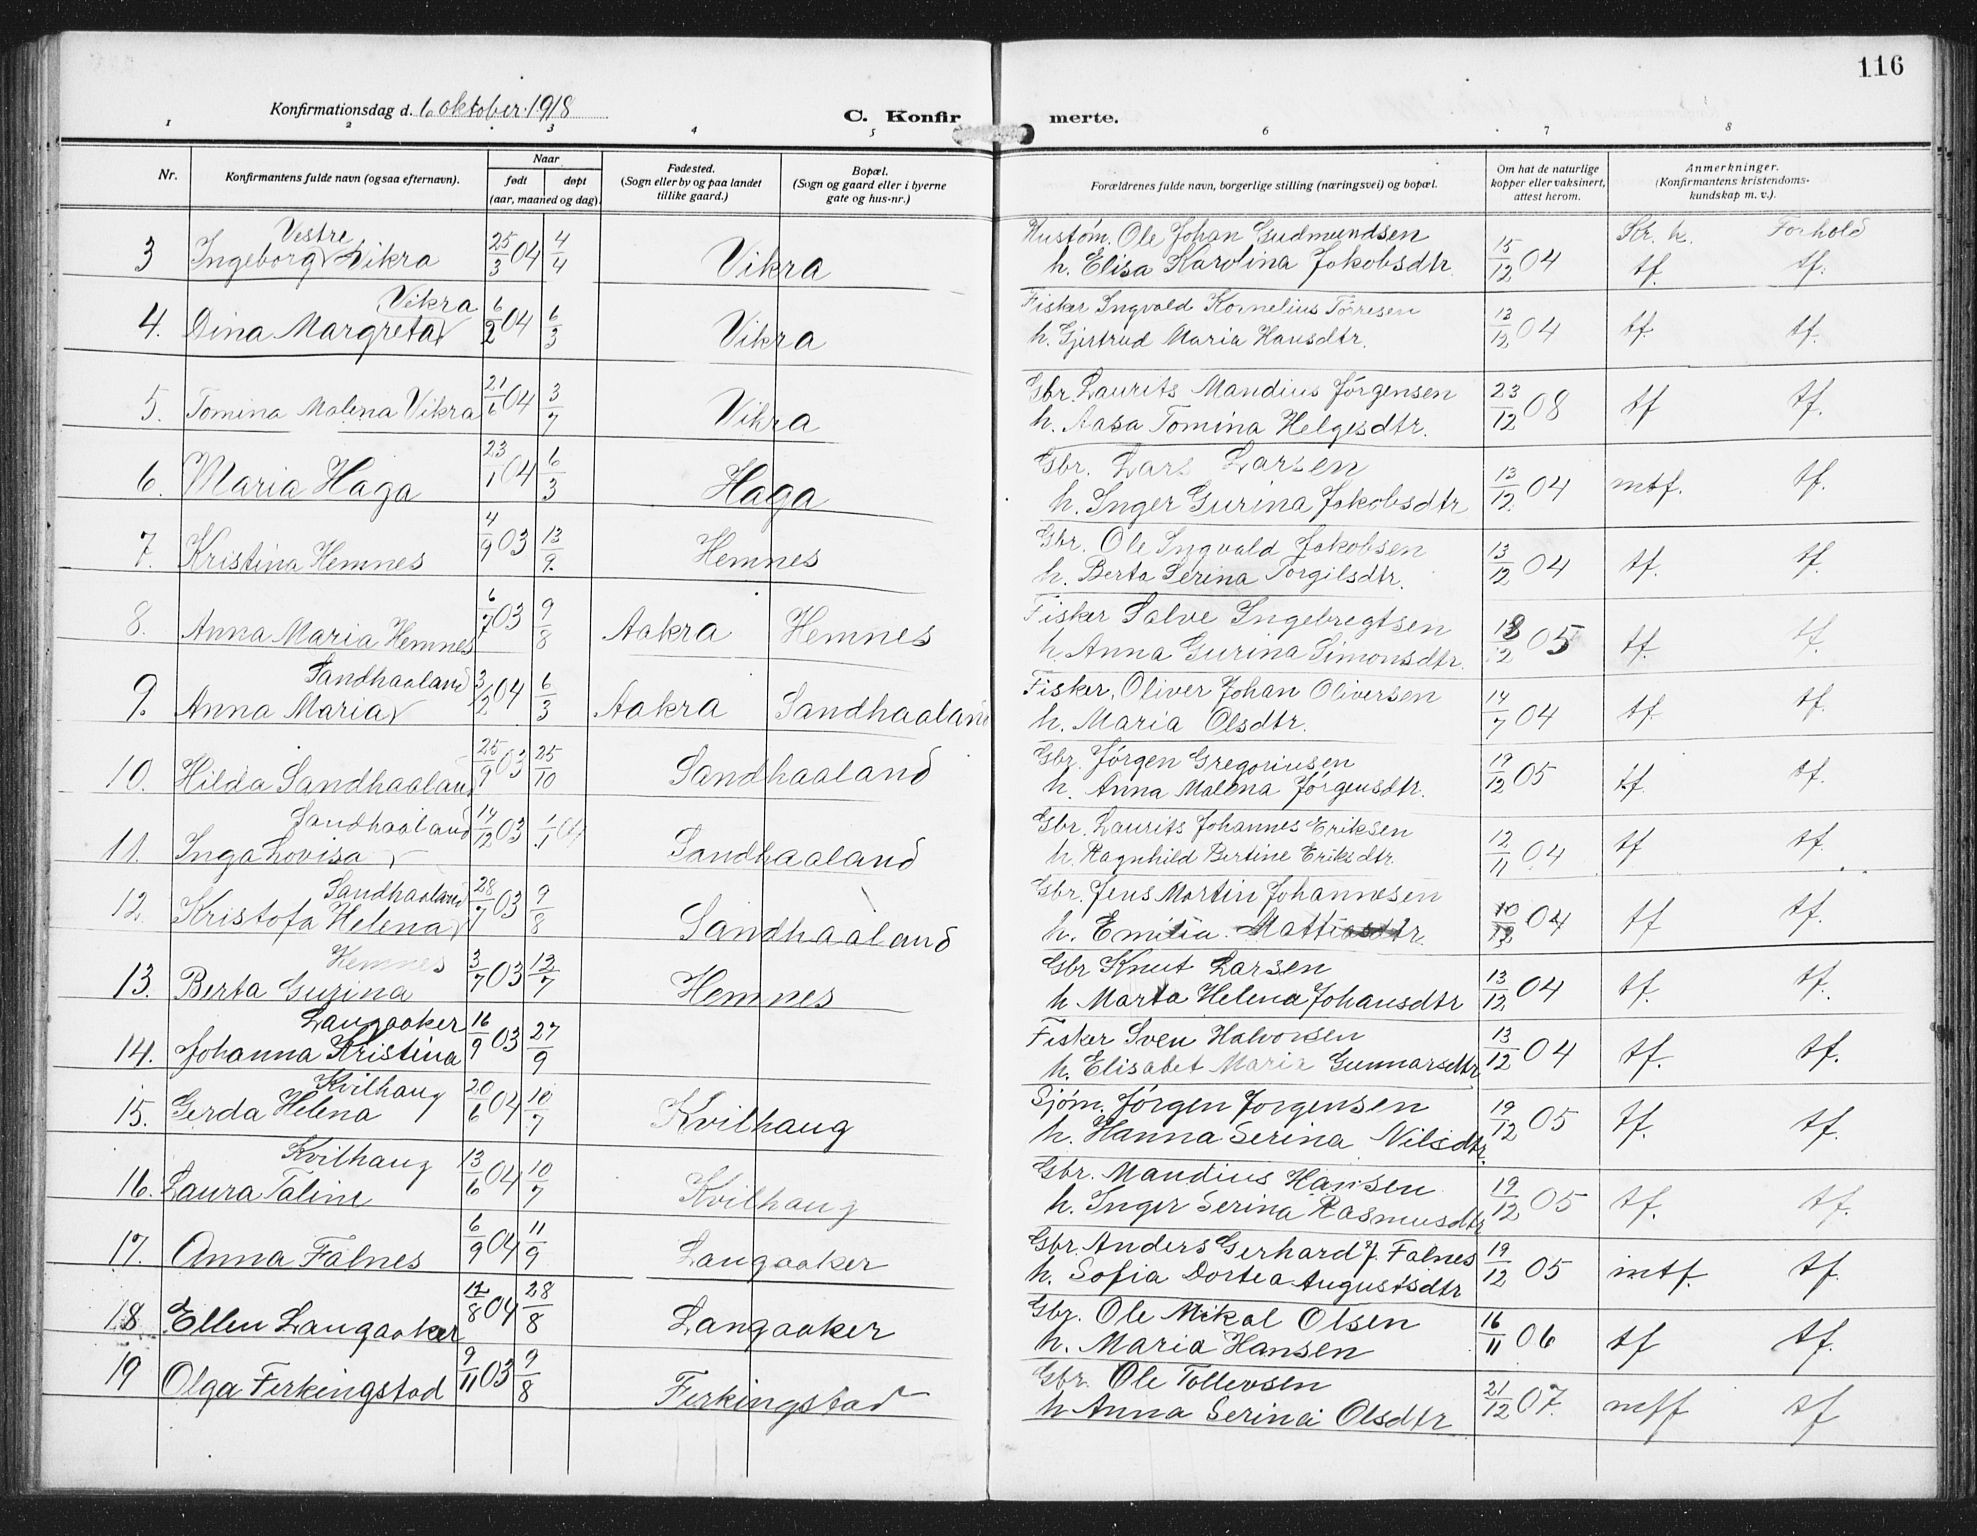 116
Konfirmationsdag d. 6 oktober 1918
C. Konfirmerte.
1 2 3 4 5 6 7 8
Nr. Konfirmantens fulde navn (ogsaa efternavn). Naar født døpt (aar, maaned og dag). Fødested. (Sogn eller by og paa landet tillike gaard.) Bopæl. (Sogn og gaard eller i byerne gate og hus-nr.) Forældrenes fulde navn, borgerlige stilling (næringsvei) og bopæl. Om hat de naturlige kopper eller vaksinert, attest herom. Anmerkninger. (Konfirmantens kristendomskundskap m. v.).
Kr. k. Forhold
3 Ingeborg Vestre Vikra 25/3 04 4/4 Vikra Hustøm. Ole Johan Gudmundsen
h. Elisa Karolina Jakobsdtr. 15/12 04 tf. tf.
4. Dina Margreta Vikra 6/2 04 6/3 Vikra Fisker Ingvald Kornelius Tørresen
h. Gjertrud Maria Hansdtr. 13/12 04 tf. tf.
5. Tomina Malena Vikra 21/6 04 3/7 Vikra Gbr. Laurits Mandius Jørgensen
h. Aasa Tomina Helgesdtr. 23/12 08 tf tf.
6. Maria Haga 23/1 04 6/3 Haga Gbr. Lars Larsen
h. Inger Gurina Jakobsdtr 13/12 04 mtf. tf.
7. Kristina Hemnes 4/9 03 13/9. Hemnes Gbr. Ole Ingvald Jakobsen
h. Berta Serina Torgilsdtr. 13/12 04 tf. tf.
8. Anna Maria Hemnes 6/7 03 9/8 Aakra Hemnes Fisker Salve Ingebregtsen
h. Anna Gurina Simonsdtr. 05 tf. tf.
9. Anna Maria Sandhaaland 3/2 04 6/3 Aakra Sandhaaland Fisker, Oliver Johan Oliversen
h. Maria Olsdtr. 14/7 04 tf tf.
10. Hilda Sandhaaland 25/9 03 25/10 Sandhaaland Gbr. Jørgen Gregoriusen
h. Anna Malena Jørgensdtr. 19/12 05 tf. tf.
11. Inga Lovisa Sandhaaland 14/12 03 1/1 04 Sandhaaland Gbr. Laurits Johannes Eriksen
h. Ragnhild Bertine Eriksdtr. 12/11 04 tf tf.
12. Kristofa Helena Sandhaaland 28/7 03 9/8 Sandhaaland Gbr. Jens Martin Johannesen
h. Emilia Mattiasdtr. 10/12 04 tf tf.
13. Berta Gurina Hemnes 3/7 03 12/7 Hemnes Gbr Knut Larsen
h Marta Helena Johansdtr 13/12 04 tf. tf.
14. Johanna Kristina Langaaker 16/9 03 27/9 Fisker Sven Halvorsen
h. Elisabet Maria Gunnarsdtr 13/12 04 tf. tf.
15. Gerda Helena Kvilhaug 20/6 04 10/7 Kvilhaug Sjøm. Jørgen Jørgensen
h. Hanna Serina Nilsdtr. 19/12 05 tf. tf.
16. Laura Taline Kvilhaug 13/6 04 10/7 Kvilhaug Gbr. Mandius Hansen
h. Inger Serina Rasmusdtr 19/12 05 tf. tf.
17. Anna Falnes 6/9 04 11/9 Langaaker Gbr. Anders Gerhard J. Falnes
h. Sofia Dortea Augustsdtr 19/12 05 mtf. tf.
18 Ellen Langaaker 12/8 04 28/8 Langaaker Gbr. Ole Mikal Olsen
h. Maria Hansen 16/11 06 tf tf.
19 Olga Ferkingstad 9/11 03 9/8 Ferkingstad Gbr. Ole Tollevsen
h Anna Serina Olsdtr 21/12 07. mtf tf